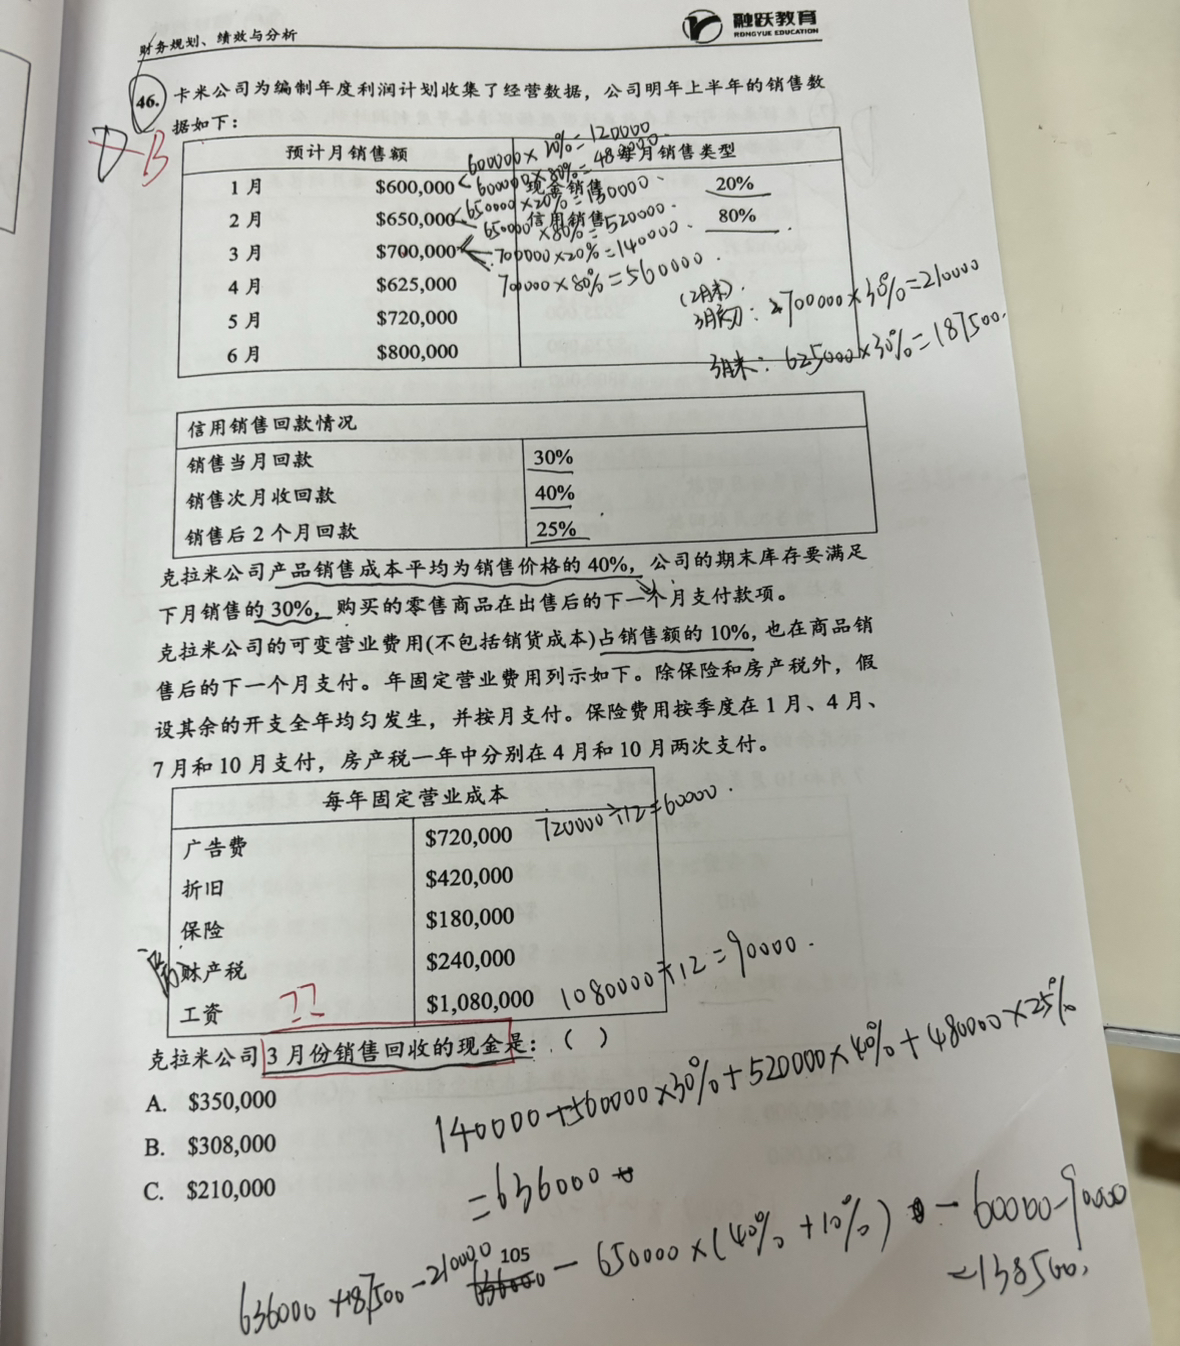 财务规划、绩效与分析
融跃教育
RONGYUE EDUCATION
46. 卡米公司为编制年度利润计划收集了经营数据，公司明年上半年的销售数
据如下：
D B
预计月销售额 每月销售类型
600000×20%=120000
1月 $600,000 现金销售 20%
600000×80%=480000
2月 $650,000 信用销售 80%
650000×20%=130000
650000×80%=520000
3月 $700,000
700000×20%=140000
700000×80%=560000
4月 $625,000
5月 $720,000
6月 $800,000
(2月末)
3月初：700000×30%=210000
3月末：625000×30%=187500
信用销售回款情况
销售当月回款 30%
销售次月收回款 40%
销售后2个月回款 25%
克拉米公司产品销售成本平均为销售价格的40%，公司的期末库存要满足
下月销售的30%，购买的零售商品在出售后的下一个月支付款项。
克拉米公司的可变营业费用(不包括销货成本)占销售额的10%，也在商品销
售后的下一个月支付。年固定营业费用列示如下。除保险和房产税外，假
设其余的开支全年均匀发生，并按月支付。保险费用按季度在1月、4月、
7月和10月支付，房产税一年中分别在4月和10月两次支付。
每年固定营业成本
广告费 $720,000 720000÷12=60000
折旧 $420,000
保险 $180,000
房 财产税 $240,000
工资 ?? $1,080,000 1080000÷12=90000
克拉米公司3月份销售回收的现金是：（ ）
A. $350,000
B. $308,000
C. $210,000
140000+560000×30%+520000×40%+480000×25%
=636000
105
636000+187500-210000 - 650000×(40%+10%) - 60000-90000
=138500